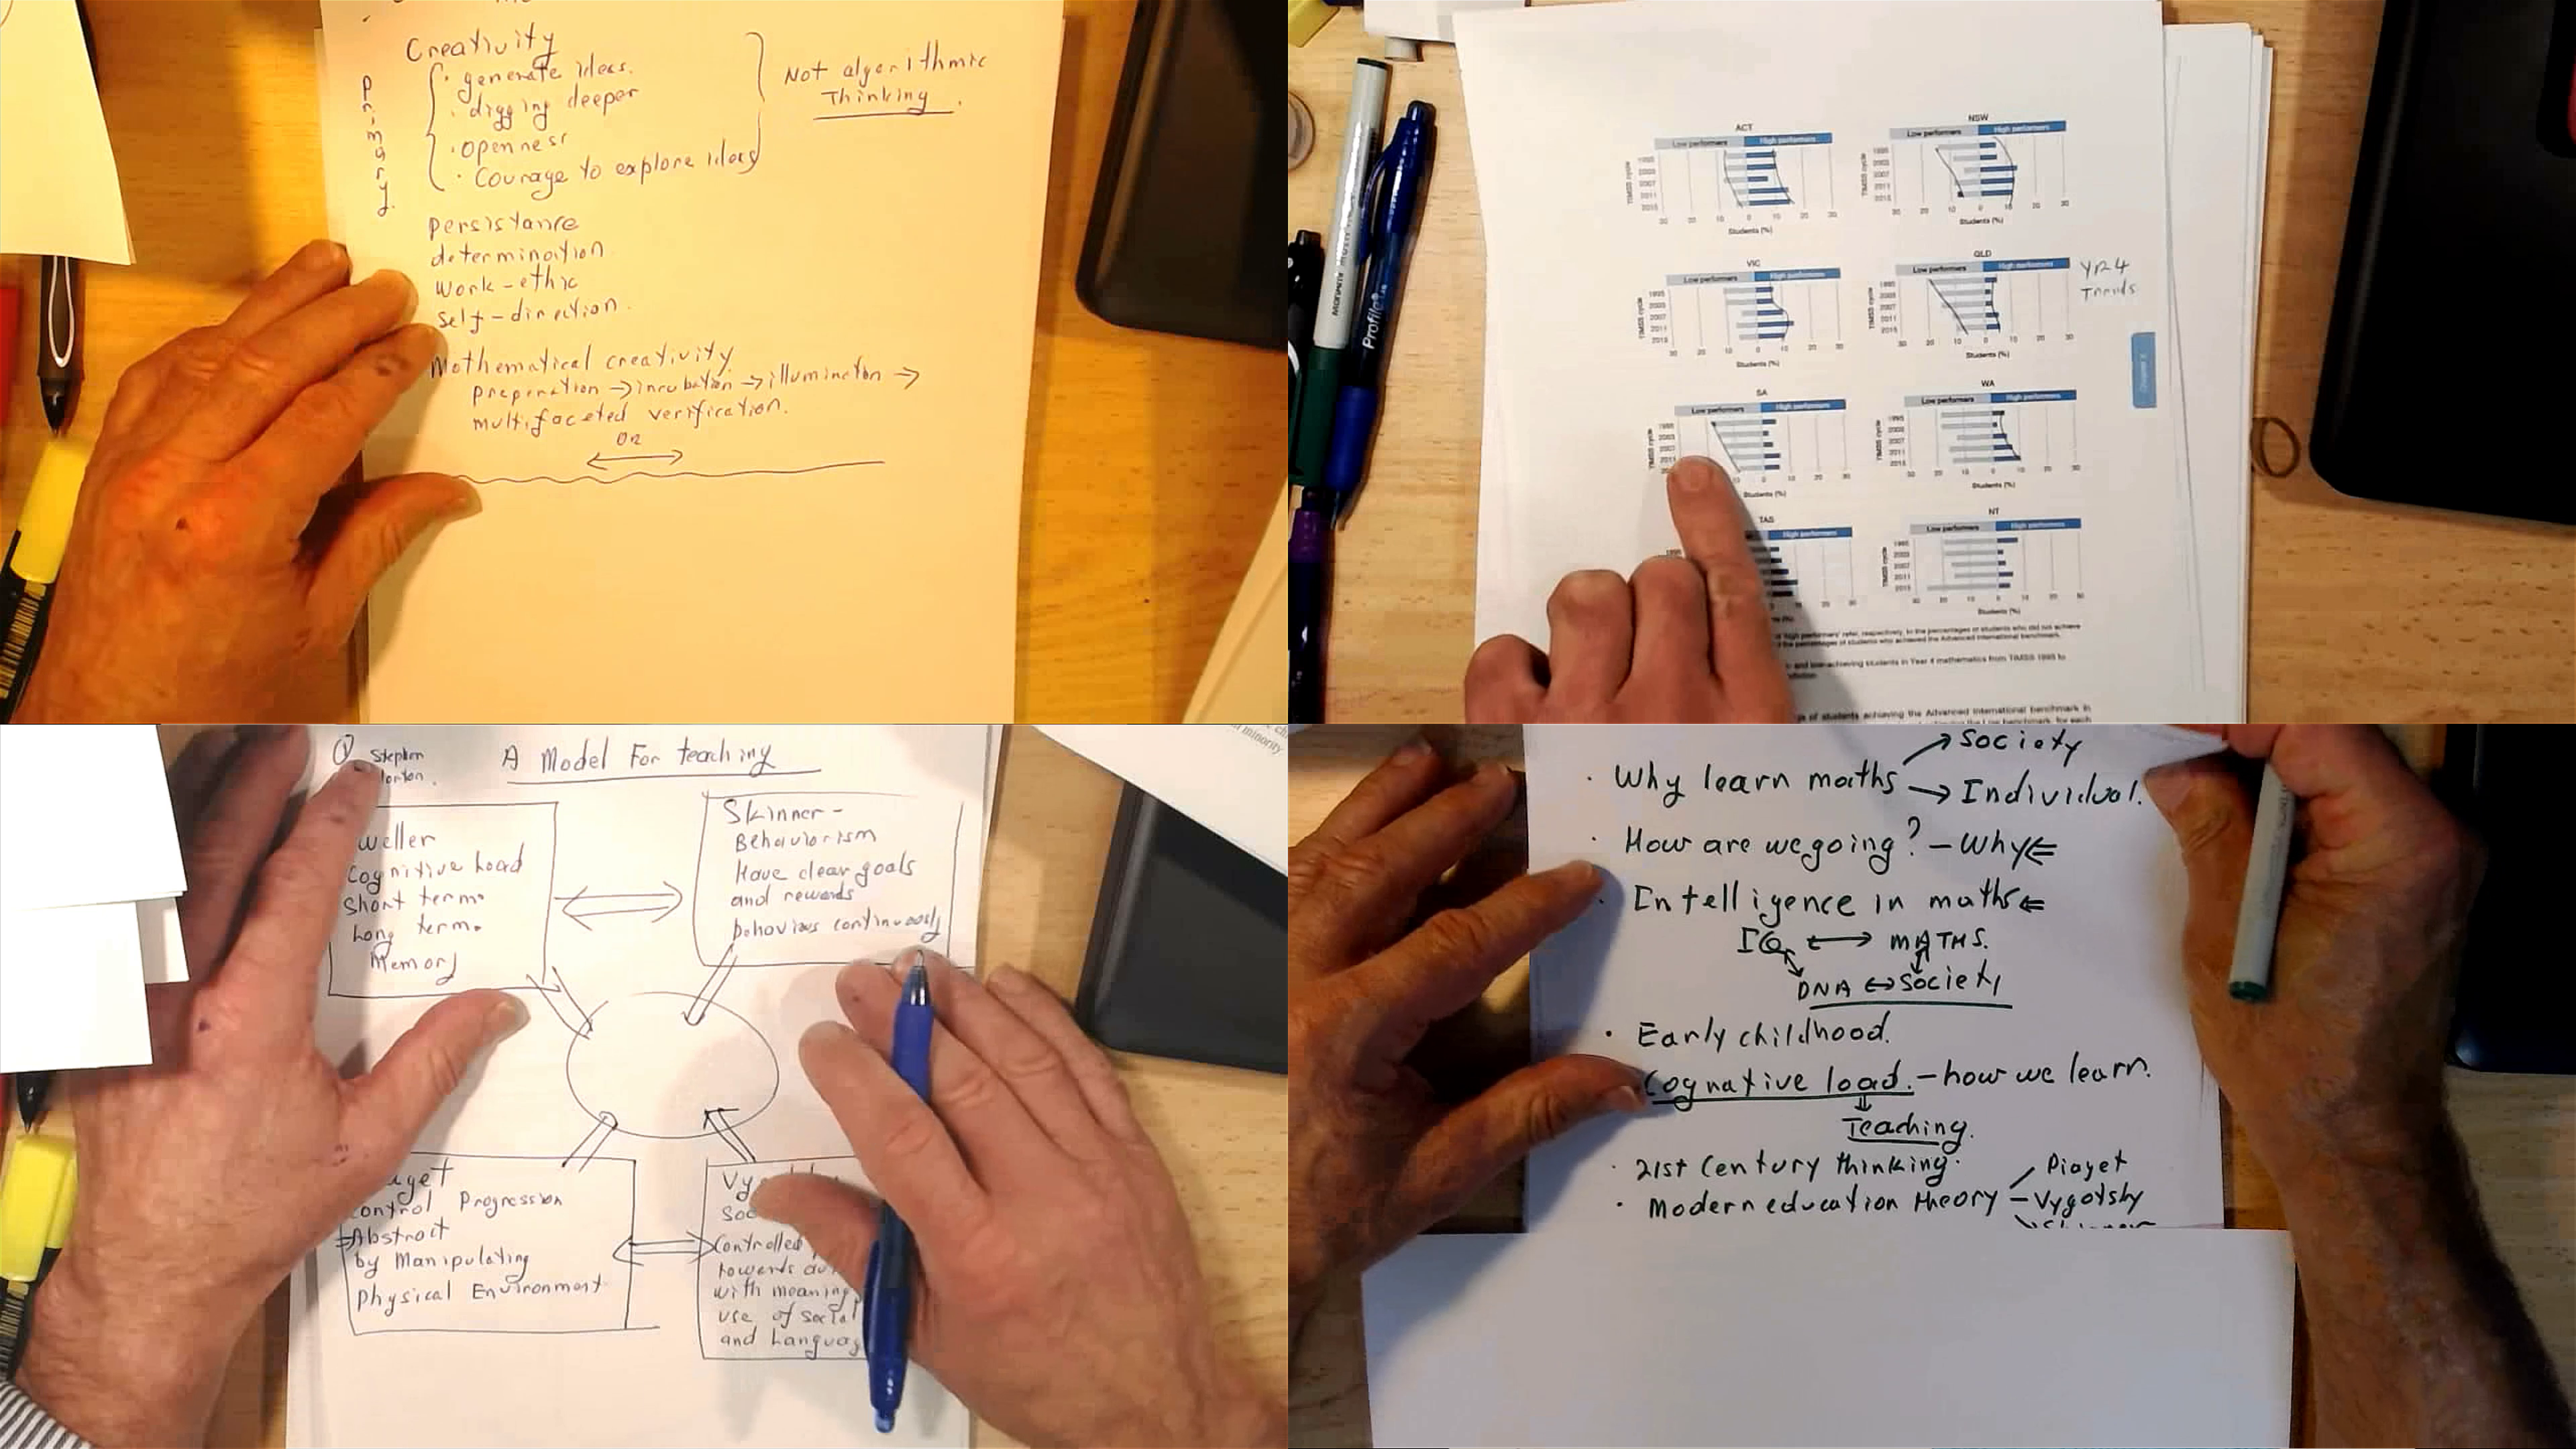 Creativity
· generate ideas.
· digging deeper
· openness
· Courage to explore ideas
Primary.
Not algorithmic
Thinking.
persistance
determination
work-ethic
self-direction.
Mathematical creativity.
preparation → incubation → illumination →
multifaceted verification.
OR
ACT
Low performers High performers
TIMSS cycle
1995
2003
2007
2011
2015
30 20 10 0 10 20 30
Students (%)
NSW
Low performers High performers
TIMSS cycle
1995
2003
2007
2011
2015
30 20 10 0 10 20 30
Students (%)
VIC
Low performers High performers
TIMSS cycle
1995
2003
2007
2011
2015
30 20 10 0 10 20 30
Students (%)
QLD
Low performers High performers
TIMSS cycle
1995
2003
2007
2011
2015
30 20 10 0 10 20 30
Students (%)
YR4
Trends
SA
Low performers High performers
TIMSS cycle
1995
2003
2007
2011
0 10 20 30
Students (%)
WA
Low performers High performers
TIMSS cycle
1995
2003
2007
2011
2015
30 20 10 0 10 20 30
Students (%)
TAS
High performers
NT
Low performers High performers
TIMSS cycle
1995
2003
2007
2011
2015
30 20 10 0 10 20 30
Students (%)
'high performers' refer, respectively, to the percentages of students who did not achieve
the percentages of students who achieved the Advanced international benchmark.
and low-achieving students in Year 4 mathematics from TIMSS 1995 to
of students achieving the Advanced international benchmark in
Profile
minority
Stephen
A Model For teaching
weller
Cognitive Load
Short term.
Long term.
Memory
Skinner-
Behaviorism
Have clear goals
and rewards
behaviors continuously
Control Progression
Abstract
by Manipulating
Physical Environment
Vy
Soc
Controlled
towards
with meaning
use of social
and Languag
Society
· Why learn maths → Individual.
· How are we going? - Why⇐
· Intelligence in maths⇐
IQ ↔ MATHS.
DNA ↔ Society
· Early childhood.
Cognative load. - how we learn.
⇓
Teaching.
· 21st Century thinking.
· Modern education theory - Piaget
- Vygotsky